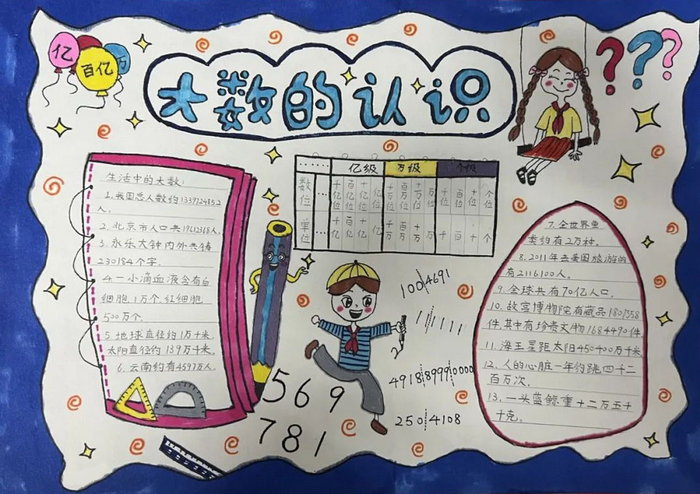 亿
百亿
万
大数的认识
? ? ?
生活中的大数:
1. 我国总人数约1339724852
人.
2. 北京市人口共19612368人.
3. 永乐大钟内外共铸
230184个字.
4. 一小滴血液含有白
细胞1万个 红细胞
500万个.
5. 地球直径约1万千米
太阳直径约139万千米.
6. 云南约有4597万人.
…… 亿级 万级 个级
数位 …… 千亿位 百亿位 十亿位 亿位 千万位 百万位 十万位 万位 千位 百位 十位 个位
单位 …… 千亿 百亿 十亿 亿 千万 百万 十万 万 千 百 十 个
1004691
111111
49181899910000
2504108
569
781
7. 全世界鱼
类约有2万种.
8. 2011年去美国旅游的
有2116100人.
9. 全球共有70亿人口.
10. 故宫博物院有藏品1807558
件.其中有珍贵文物1684490件.
11. 海王星距太阳450400万千米
12. 人的心脏一年约跳四十二
百万次.
13. 一头蓝鲸重十二万五千
千克.